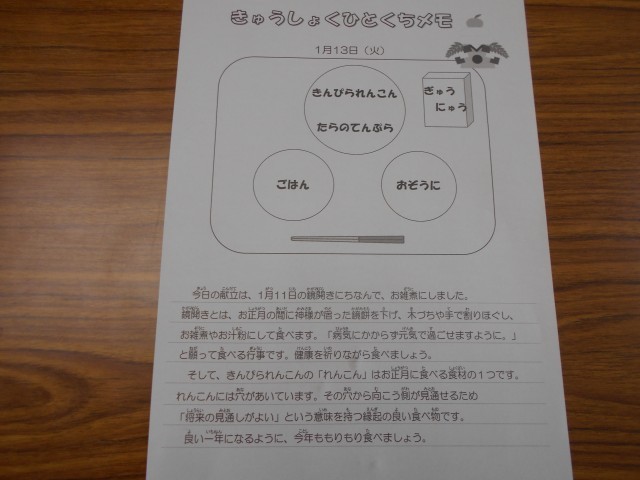 きゅうしょくひとくちメモ
1月13日（火）
きんぴられんこん
たらのてんぷら
ぎゅう
にゅう
ごはん
おぞうに
今日の献立は、1月11日の鏡開きにちなんで、お雑煮にしました。
鏡開きとは、お正月の間に神様が宿った鏡餅を下げ、木づちや手で割りほぐし、
お雑煮やお汁粉にして食べます。「病気にかからず元気で過ごせますように。」
と願って食べる行事です。健康を祈りながら食べましょう。
そして、きんぴられんこんの「れんこん」はお正月に食べる食材の1つです。
れんこんには穴があいています。その穴から向こう側が見通せるため
「将来の見通しがよい」という意味を持つ縁起の良い食べ物です。
良い一年になるように、今年ももりもり食べましょう。